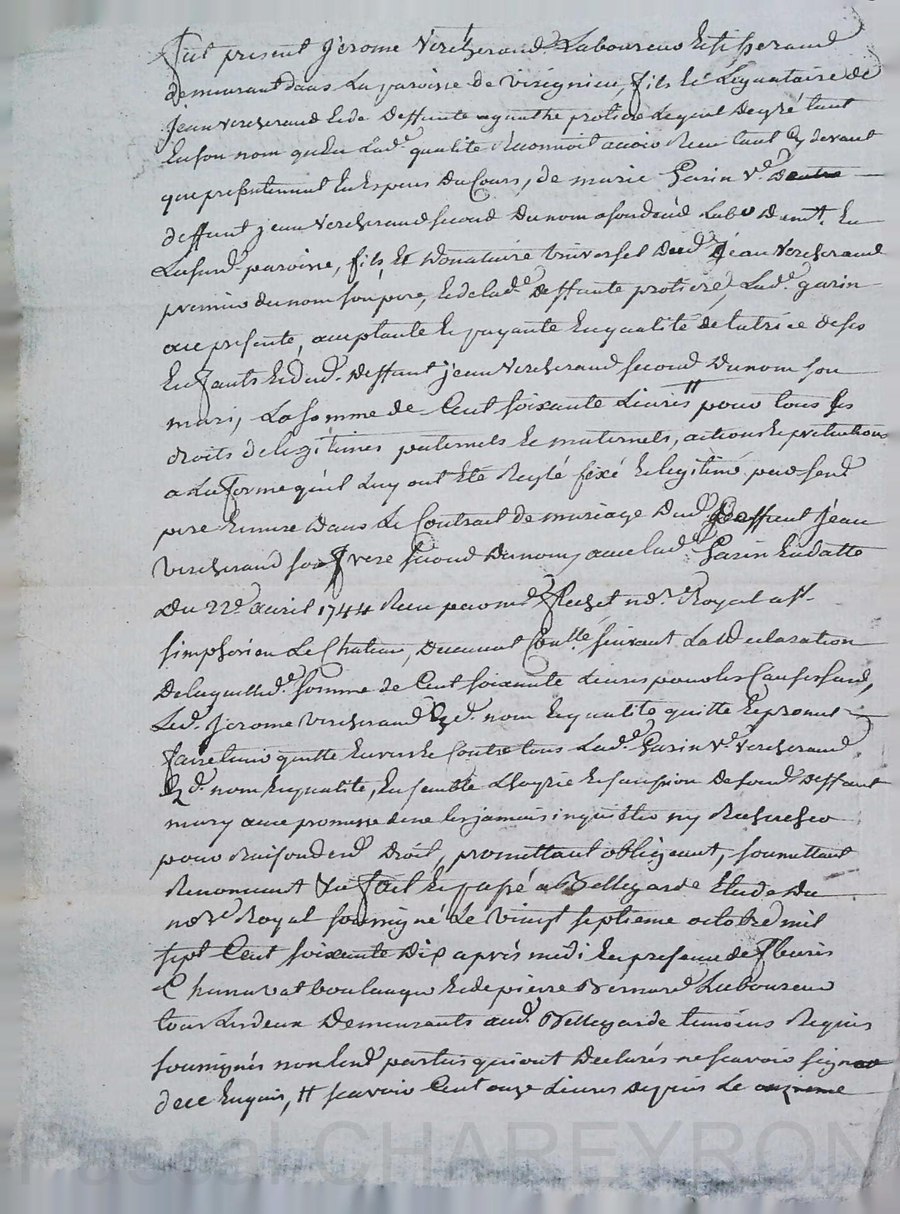 fut present Jerome Vercherand Laboureur et tisserand
demeurant dans La paroisse de Virignieu, fils et Legataire de
Jean vercherand et de Deffunte agathe protiere Lequel De gré tant
En son nom qu'En Lad.e qualité Reconnoit avoir Reçu tant Cy devant
que presentement En Especes Du Cours, de marie Garin V.e
deffunt jean Vercherand second Du nom a son decéd Lab.r Dem.t En
La susd. paroisse, fils et Donataire universel Dud. Jean Vercherand
premier du nom son pere, et de lad.e Deffunte protiere, Lad.e garin
icy presente, acceptante et payante En qualité de tutrice de ses
Enfants et dud. Deffunt jean Vercherand second Du nom son
mari, La somme de Cent soixante Livres # pour tous ses
droits de legitimes paternels et maternels, actions et pretentions
a La forme qu'il Luy ont Eté Reglé fixé et legitimé par sesd.
pere et mere Dans Le Contrat de mariage Dud. Deffunt jean
Vercherand son frere second Du nom, avec lad.e Garin En datte
Du 22e avril 1744 Reçu par me flachet no.re Royal a St
simphorien Le Chateau, Duement Con.lle suivant La Declaration
De laquelle d.e somme de Cent soixante Livres pour les Causes susd,
Led. Jerome Vercherand Eз d. nom Et qualité quitte Et promet
faire tenir quitte Envers Et Contre tous Lad.e Garin V.e Vercherand
Eз d. nom Et qualité, Ensemble L'hoyrie Et succession De sond. Deffunt
mary avec promesse de ne les jamais inquieter ny Rechercher
pour Raison de ce Droit, promettant obligeant, soumettant
Renoncant &a fait Et passé a Bellegarde Etude Du
no.re Royal soussigné Le vingt septieme octobre mil
sept Cent soixante Dix après midi En presence de fleuris
Chanavat boulanger Et de pierre Bernard Laboureur
tous Les deux Demeurants aud. Bellegarde temoins Requis
soussignés non lesd. parties qui ont Declarés ne scavoir signer
de ce Enquis, # scavoir Cent onze Livres Depuis Le onzieme
Pascal CHAREYRON